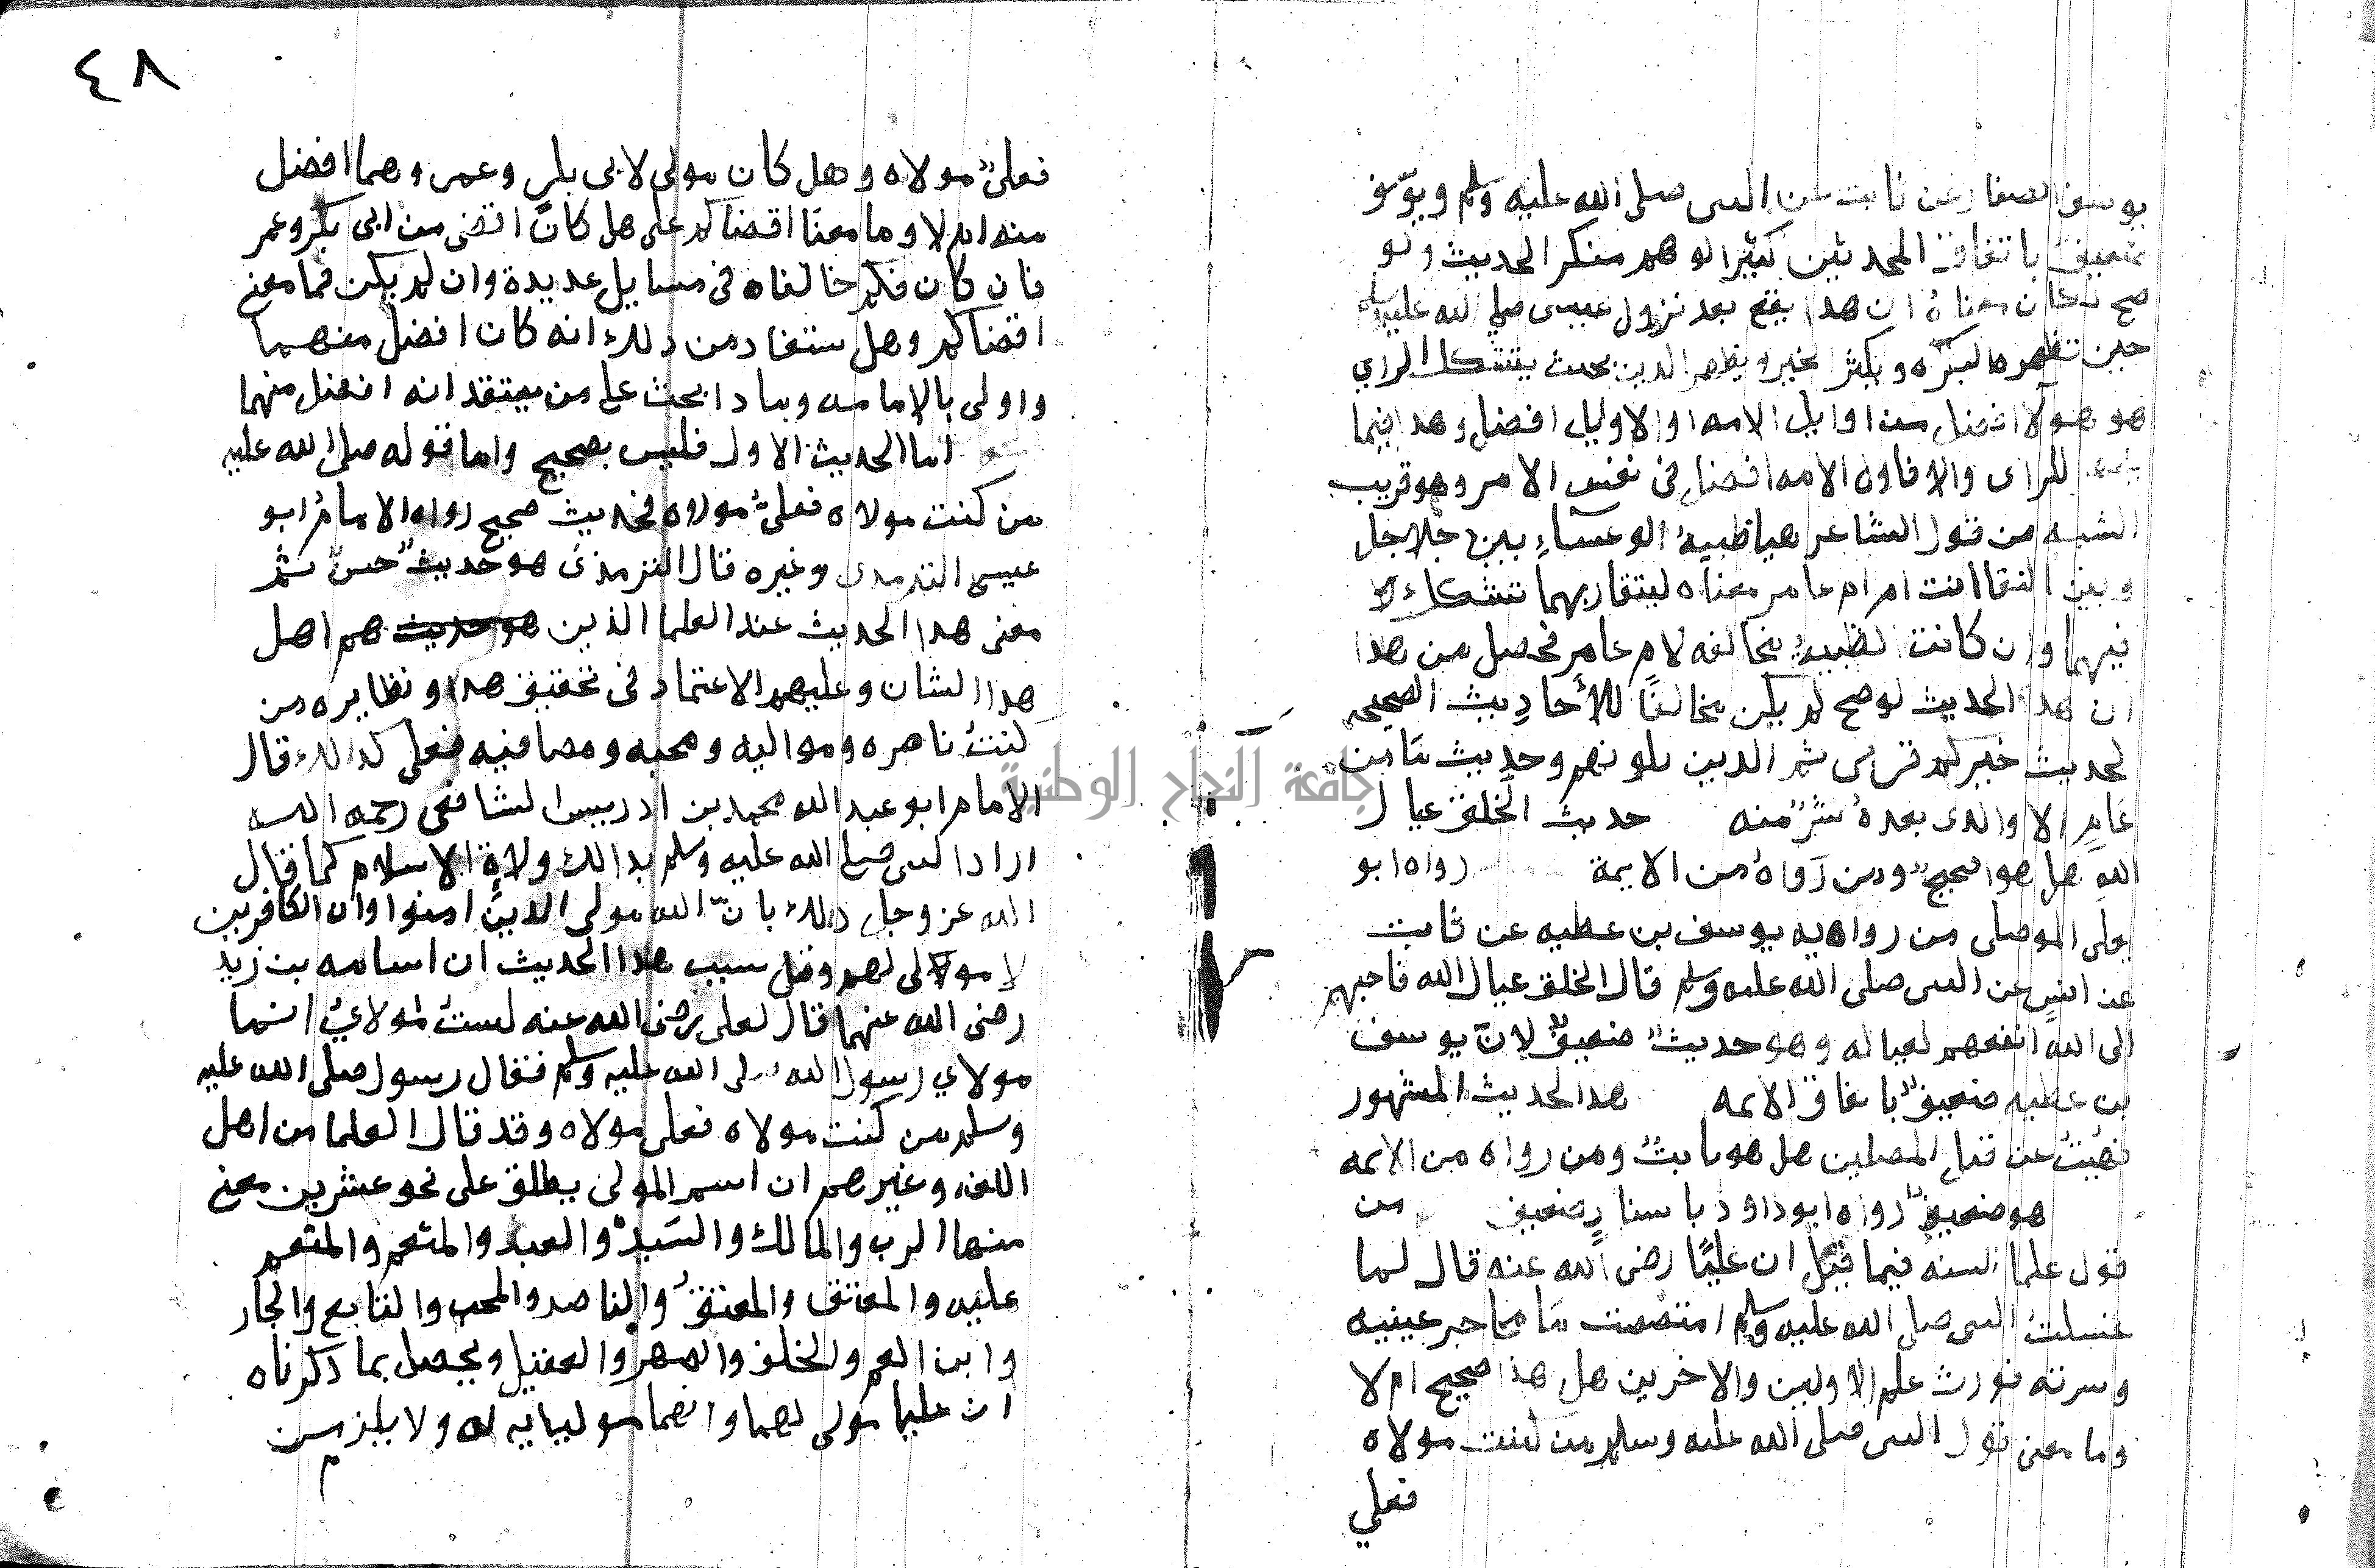 يوسف الصفار عن ثابت عن النبى صلى الله عليه وسلم ويوسف
ضعيف باتفاق المحدثين كثير الوهم منكر الحديث ولو
صح لكان معناه ان هذا يقع بعد نزول عيسى صلى الله عليه وسلم
حين تظهر البركه ويكثر الخير ويظهر الدين بحيث يتشكل الراي
هو هولا افضل من اوايل الامه او الاوايل افضل وهدا فيما
للراى والا فاول الامه افضل فى نفس الامر وهو قريب
الشبه من قول الشاعر فيا ظبية الوعساء بين جلاجل
وبين النقا اانت ام ام عامر معناه لتقاربهما تتشكك
فيهما وان كانت الظبية مخالفه لام عامر فحصل من هدا
ان هدا الحديث لو صح لم يكن مخالفا للأحاديث الصحيحه
لحديث خيركم قرنى ثم الدين يلونهم وحديث ما من
عام الا والدى بعده شر منه حديث الخلق عيال
الله هل هو صحيح ومن رواه من الايمة رواه ابو
يعلى الموصلى من روايه يوسف بن عطيه عن ثابت
عن انس عن النبى صلى الله عليه وسلم قال الخلق عيال الله فاحبهم
الى الله انفعهم لعياله وهو حديث ضعيف لان يوسف
بن عطيه ضعيف باتفاق الائمه هدا الحديث المشهور
نهيت عن قتل المصلين هل هو ثابت ومن رواه من الائمه
هو ضعيف رواه ابو داود باسناد ضعيف من
قول علما السنه فيما قيل ان عليا رضى الله عنه قال لما
غسلت النبى صلى الله عليه وسلم امتصصت ما محاجر عينيه
وسرته فورث علم الاولين والاخرين هل هذا صحيح ام لا
وما معنى قول النبى صلى الله عليه وسلم من كنت مولاه
فعلي
٤٨
فعلى مولاه وهل كان مولى لابى بكر وعمر وهما افضل
منه ام لا وما معنا اقضاكم على هل كان اقضى من ابى بكر وعمر
فان كان فكم خالفاه فى مسايل عديدة وان لم يكن فما معنى
اقضاكم وهل ستفاد من دلك انه كان افضل منهما
واولى بالإمامه وبمادا بحث على من يعتقد انه افضل منهما
اما الحديث الاول فليس بصحيح واما قوله صلى الله عليه
من كنت مولاه فعلى مولاه فحديث صحيح رواه الامام ابو
عيسى الترمدى وغيره قال الترمذى هو حديث حسن ثم
معنى هدا الحديث عند العلما الذين هو حديث هم اهل
هدا الشان وعليهم الاعتماد فى تحقيق هدا ونظايره من
كنت ناصره ومواليه ومحبه ومصافيه فعلى كدلك قال
الامام ابو عبد الله محمد بن ادريس الشافعى رحمه الله
اراد النبى صلى الله عليه وسلم بدالك ولاة الاسلام كما قال
الله عز وجل دلك بان الله مولى الدين امنوا وان الكافرين
لا مولى لهم وقيل سبب هدا الحديث ان اسامه بن زيد
رضى الله عنهما قال لعلى رضى الله عنه لست مولاي انما
مولاي رسول الله صلى الله عليه وسلم فقال رسول صلى الله عليه
وسلم من كنت مولاه فعلى مولاه وقد قال العلما من اهل
اللغه وغيرهم ان اسم المولى يطلق على نحو عشرين معنى
منها الرب والمالك والسيد والعبد والمنعم والمنعم
عليه والمعتق والمعتق والناصر والمحب والتابع والجار
وابن العم والحلف والصهر والعقيل ويحصل بما ذكرناه
ان عليا مولى لهما وانهما مولياه له ولا يلزم من
جامعة النجاح الوطنية